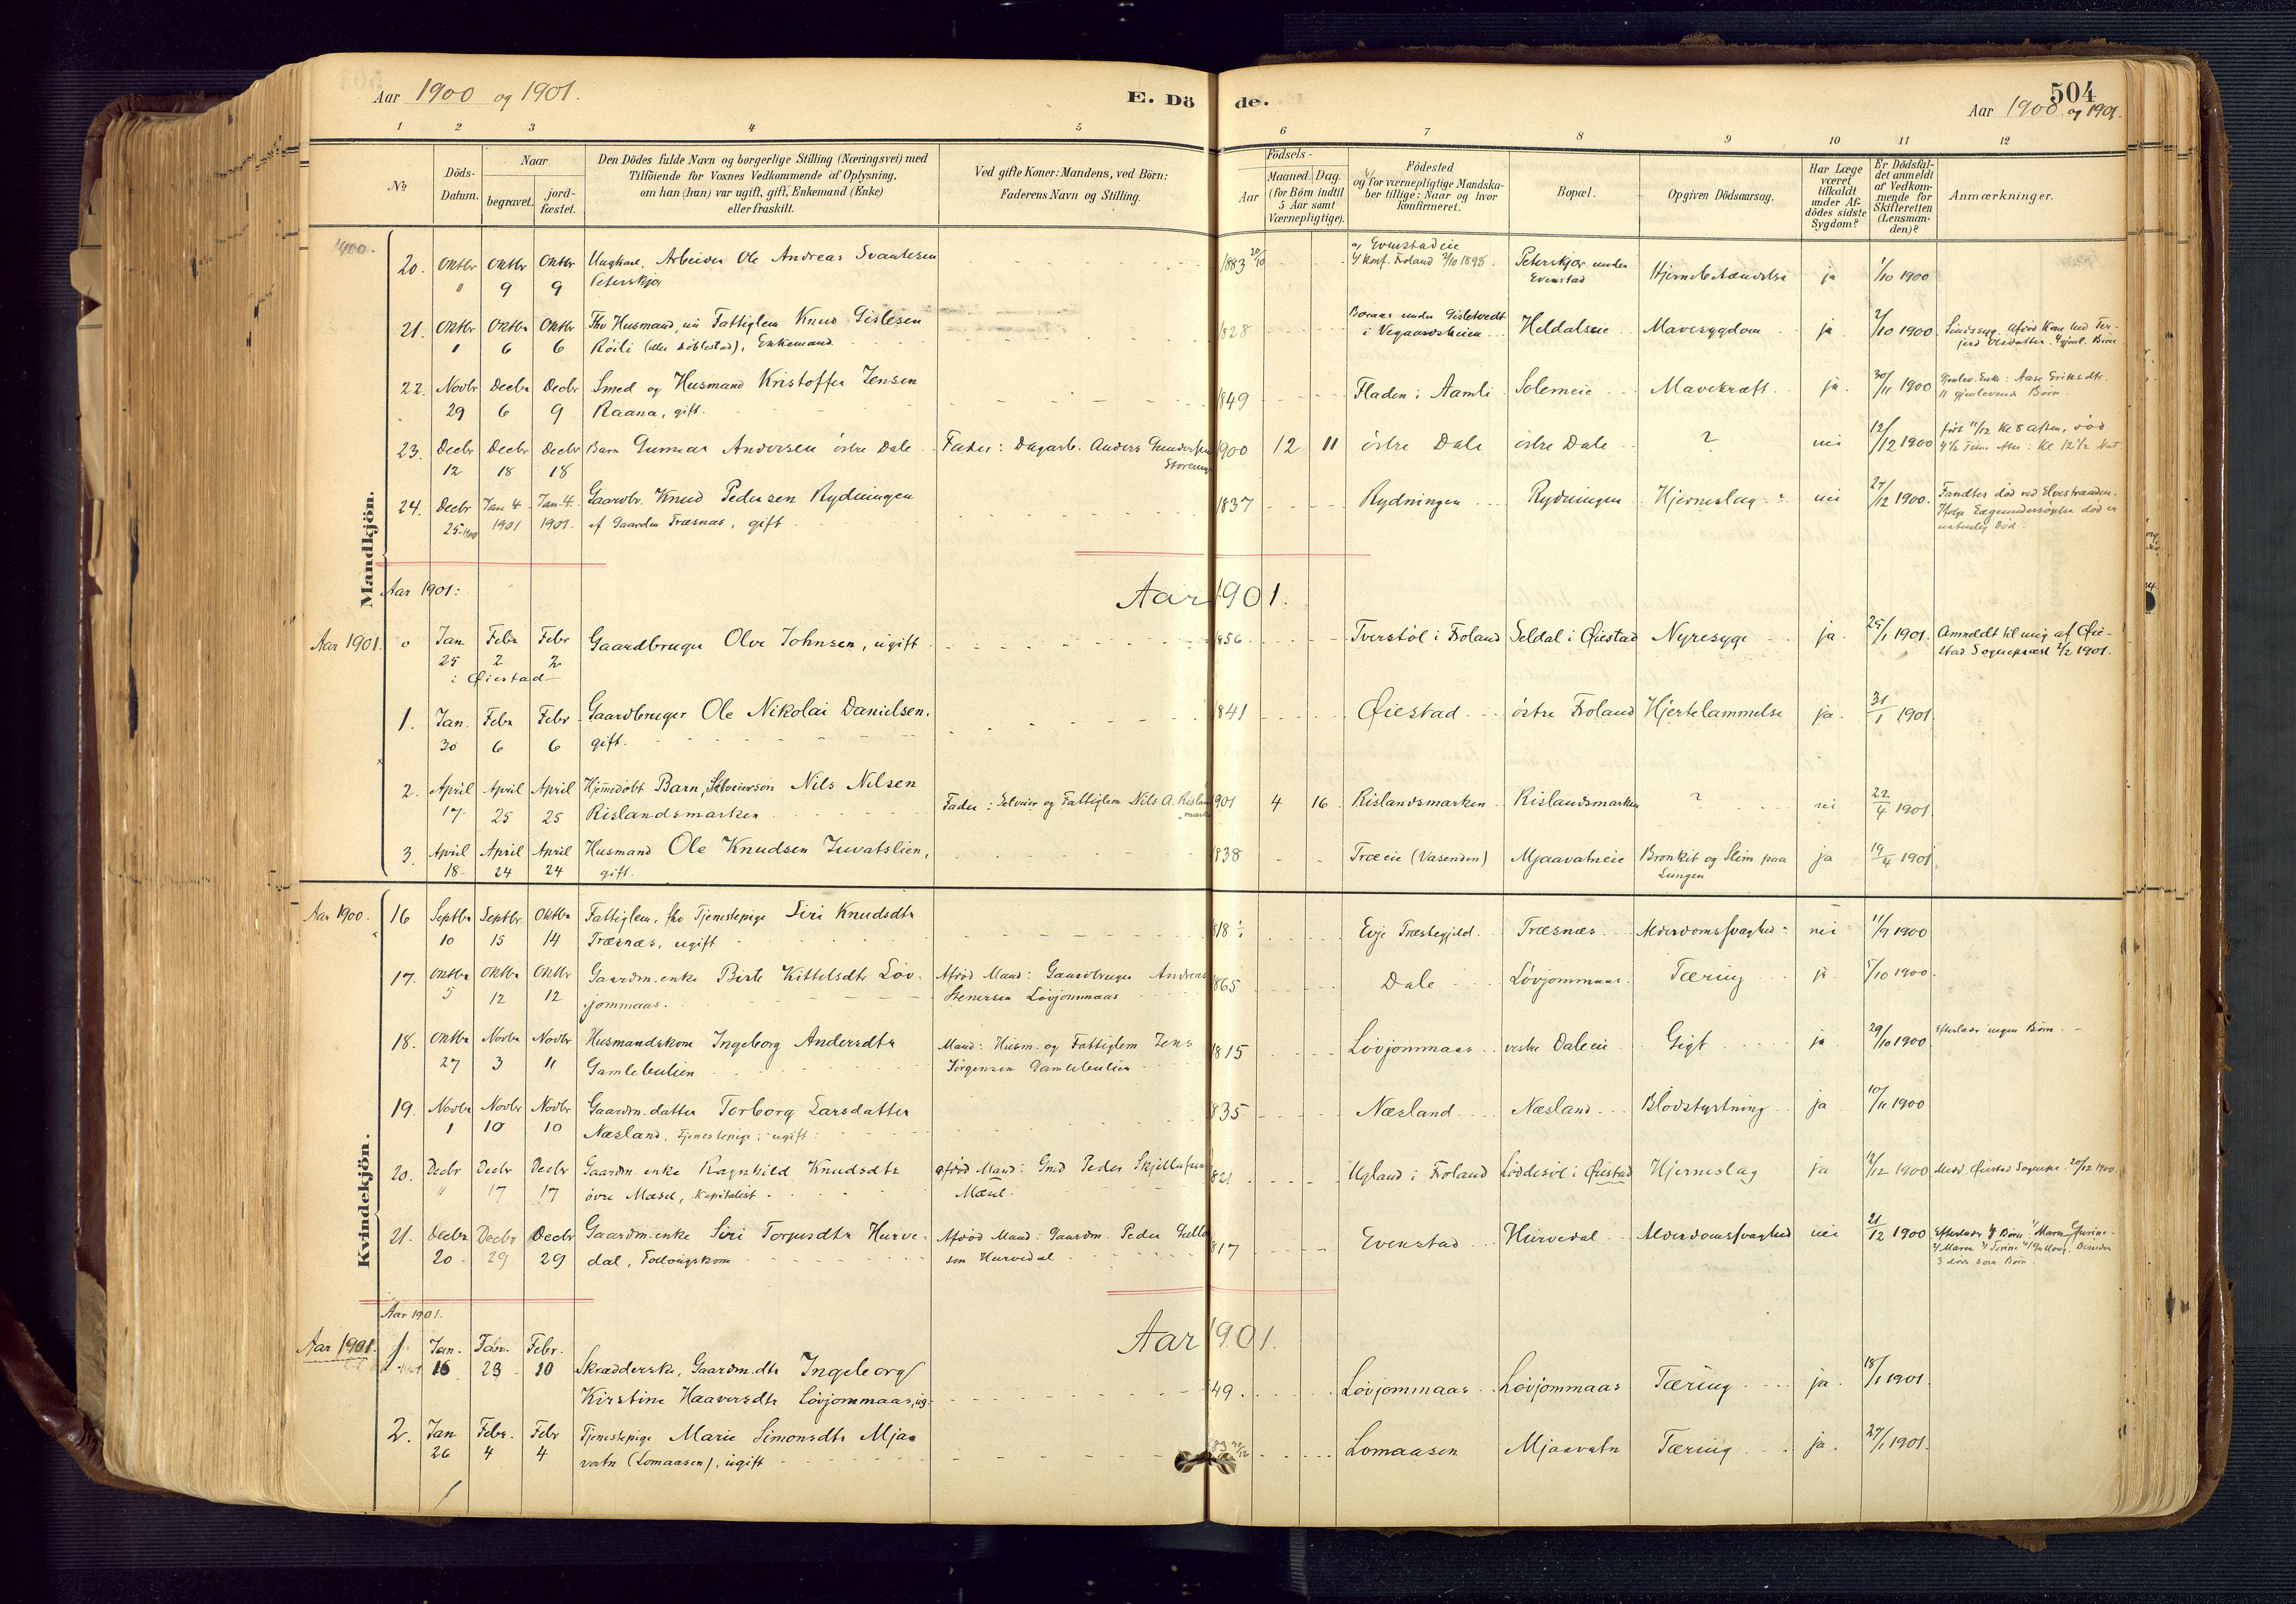 Aar 1900 og 1901.
E. Dö
de.
504
Aar 1900 og 1901.
1 2 3 4 5 6 7 8 9 10 11 12
No
Döds-Datum.
Naar
begravet.
jord-fæstet.
Den Dödes fulde Navn og borgerlige Stilling (Næringsvei) med
Tilföiende for Voxnes Vedkommende af Oplysning,
om han (hun) var ugift, gift, Enkemand (Enke)
eller fraskilt.
Ved gifte Koner: Mandens, ved Börn:
Faderens Navn og Stilling.
Födsels-
Aar
Maaned. Dag.
(for Börn indtil
5 Aar samt
Værnepligtige).
Födested
og for værnepligtige Mandska-
ber tillige: Naar og hvor
konfirmeret.
Bopæl.
Opgiven Dödsaarsag.
Har Læge
været
tilkaldt
under Af-
dödes sidste
Sygdom?
Er Dödsfal-
det anmeldt
af Vedkom-
mende for
Skifteretten
(Lensman-
den)?
Anmærkninger.
Mandkjön.
1900.
20. Oktbr Oktbr 9 Oktbr 9 Ungkarl, Arbeider Ole Andreas Svantesen
Peterskjær
1883 20/10 Evenstadeie
Konf. Froland 2/10 1898. Peterskjær under
Evenstad Hjernebetændelse ja 1/10 1900
21. Oktbr 1 Oktbr 6 Oktbr 6 Fhv Husmand, nu Fattiglem Knud Gislesen
Röili (eller Döblestad), Enkemand
1828 Boraas under Gisletvedt
i Vegaardsheien Heldalseie Mavesygdom ja 2/10 1900 Sindssyg.
22. Novbr 29 Decbr 6 Decbr 9 Smed og Husmand Kristoffer Jensen
Raana, gift.
1849 Fladen i Aamli Solemeie Mavekræft ja 30/11 1900 Gjenlev. Enke: Aase Eriksdtr.
11 gjenlevende Börn.
23. Decbr 12 Decbr 18 Decbr 18 Barn Gunnar Andersen östre Dale Fader: Dagarb. Anders Gundersen
1900 12 11 östre Dale östre Dale ? nei 12/12 1900 född 11/12 Kl 8 aften, död
24. Decbr 25-1900 Jan 4 1901 Jan 4 1901 Gaardbr. Knud Pedersen Rydningen
af Gaarden Træsnæs, gift
1837 Rydningen Rydningen Hjerneslag nei 27/12 1900. Fandtes död ved Elvestranden.
naturlig Död.
Aar 1901:
Aar 1901.
Aar 1901 0 Jan 25 Febr 2 Febr 2 Gaardbruger Olve Johnsen, ugift
i Øiestad
1856 Tverstöl i Froland Seldal i Øiestad Nyresyge ja 25/1 1901. Anmeldt til mig af Øie-
stad Sogneprest 2/2 1901.
1. Jan. 30 Febr 6 Febr 6 Gaardbruger Ole Nikolai Danielsen,
gift.
1841 Øiestad östre Froland Hjertelammelse ja. 31/1 1901.
2. April 17 April 25 April 25 Hjemmedöbt Barn, Selveiersön Nils Nilsen
Rislandsmarken Fader: Selveier og Fattiglem Nils A. Rislands-
mark
1901 4 16 Rislandsmarken Rislandsmarken ? nei 22/4 1901.
3. April 18 April 24 April 24 Husmand Ole Knudsen Juvatslien,
gift.
1838 Træeie (Vasenden) Mjaavatneie Bronkit og Slim paa
Lungen ja 19/4 1901
Kvindekjön.
Aar 1900. 16 Septbr 10 Septbr 15 Oktbr 14 Fattiglem, fhv Tjenestepige Siri Knudsdtr
Træsnæs, ugift
1818 Evje Præstegjeld. Træsnæs Alderdomssvaghed nei 11/9 1900
17. Oktbr 5 Oktbr 12 Oktbr 12 Gaardm.enke Birte Kittelsdtr Löv-
jommaas. Afdöd Mand: Gaardbruger Andreas
Stenersen Lövjommaas
1865 Dale Lövjommaas Tæring ja 5/10 1900.
18. Oktbr 27 Novbr 3 Novbr 11 Husmandskone Ingeborg Andersdtr
Gamlebulien Mand: Husm. og Fattiglem Jens
Jörgensen Gamlebulien
1815 Lövjommaas vestre Daleeie Gigt ja 29/10 1900 Efterlader ingen Börn.
19. Novbr 1 Novbr 10 Novbr 10 Gaardm.datter Torborg Larsdatter
Næsland, Tjenestepige, ugift
1835 Næsland Næsland Blodstyrtning ja 10/11 1900
20. Decbr " Decbr 17 Decbr 17 Gaardm.enke Ragnhild Knudsdtr
övre Mæsel, Kapitalist. afdöd Mand: Gmd Peder
Mæsel.
1821 Ugland i Froland Löddesöl i Øiestad Hjerneslag ja 12/12 1900 Medd. Øiestad Sognepr. 20/12 1900.
21. Decbr 20 Decbr 29 Decbr 29 Gaardm.enke Siri Torjusdtr Hurve-
dal, Föderaadskone Afdöd Mand: Gaardm. Peder
sen Hurvedal
1817 Evenstad Hurvedal Alderdomssvaghed nei 21/12 1900 Efterlader Börn:
3 döde som Börn.
Aar 1901.
Aar 1901.
Aar 1901. 1. Jan. 16 Jan. 23 Febr. 10 Skrædderske, Gaardm.dtr Ingeborg
Kirstine Haaversdtr Lövjommaas, ug.
49. Lövjommaas Lövjommaas Tæring ja 18/1 1901.
2. Jan 26 Febr. 4 Febr 4 Tjenestepige Marie Simonsdtr Mjaa
vatn (Lomaasen), ugift
Lomaasen Mjaavatn Tæring ja. 29/1 1901.